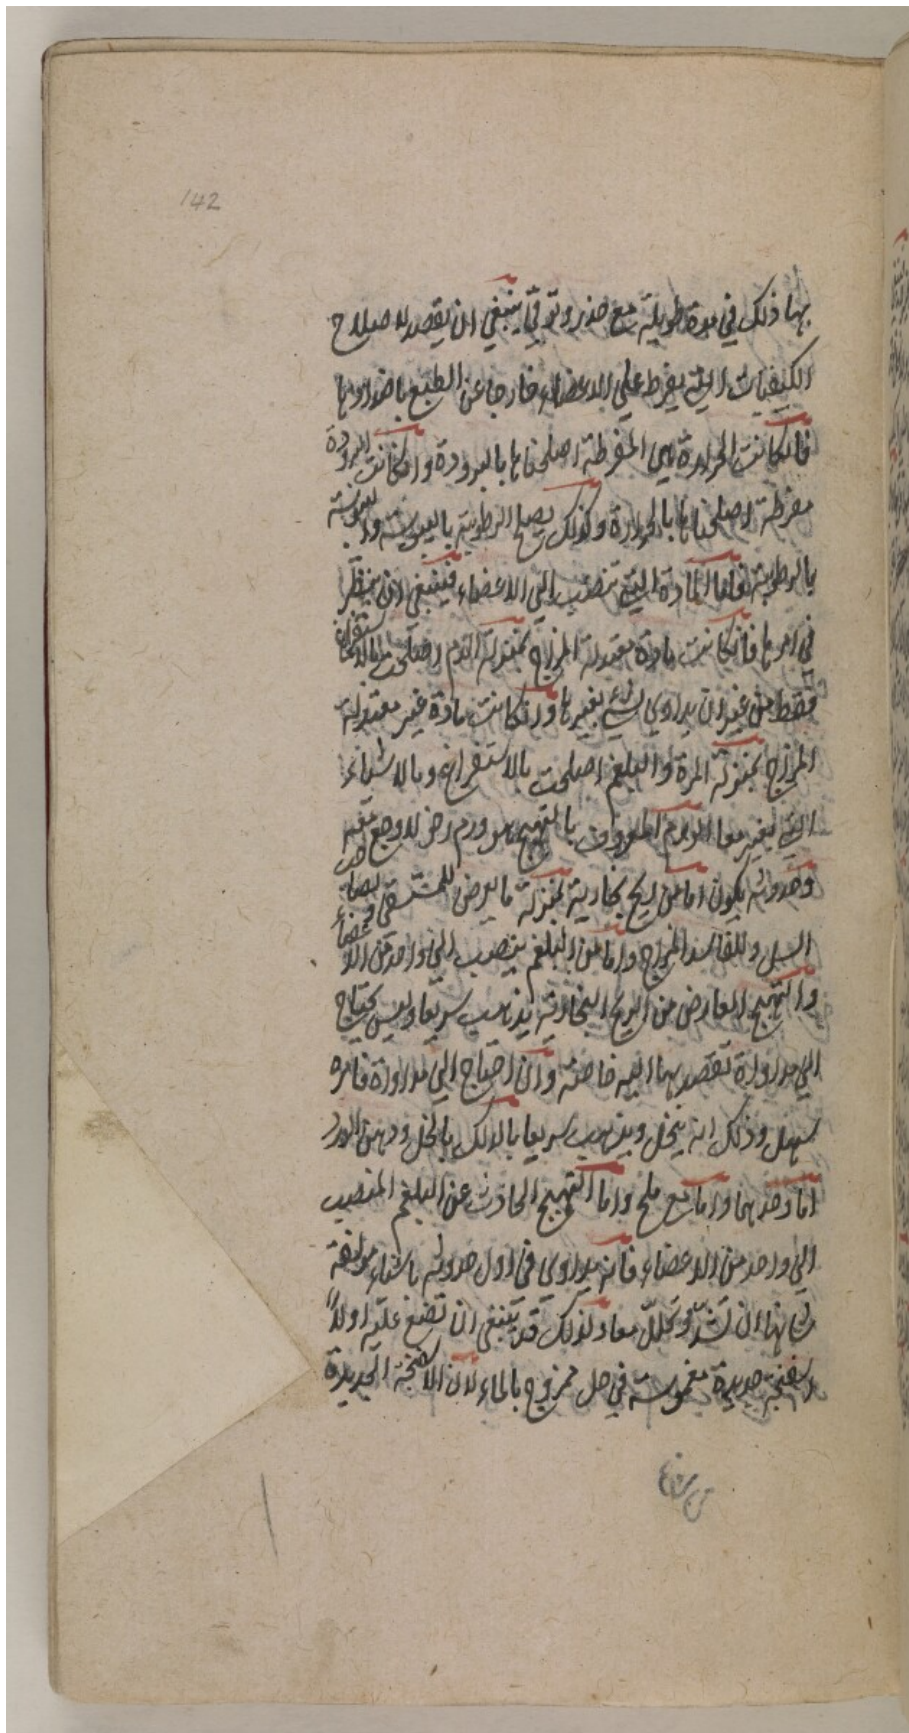 142
بها ذلك في مدة طويلة مع حذر وتوقي ينبغي ان يقصد لاصلاح
الكيفيات التي يفرط علي الاعضاء خارجا عن الطبع باضدادها
فانكانت الحرارة هي المفرطة اصلحناها بالبرودة وانكانت البرودة
مفرطة اصلحناها بالحرارة وكذلك يصلح الرطوبة باليبوسة واليبوسة
بالرطوبة فاما المادة التي تنصب الي الاعضاء فينبغي ان ينظر
في امرها فانكانت مادة معتدلة المزاج بمنزلة الدم اصلحت بالاستفراغ
فقط من غير ان يداوي بشئ يغيرها وانكانت مادة غير معتدلة
المزاج بمنزلة المرة والبلغم اصلحت بالاستفراغ وبالاشياء
التي يغيرها الورم المعروف بالتهيج هو ورم رخو لا وجع معه
وحدوثه يكون اما من ريح بخارية بمنزلة ما يعرض للمستسقي ولصاحب
السل وللفاسد المزاج واما من البلغم ينصب الي واحد من الاعضاء
والتهيج العارض من الريح البخارية يذهب سريعا وليس يحتاج
الي مداواة تقصد بها اليه خاصة وان احتاج الي مداواة فامره
سهل وذلك انه ينحل ويذهب سريعا بالدلك بالخل ودهن الورد
اما وحدهما واما مع ملح واما التهيج الحادث عن البلغم المنصب
الي واحد من الاعضاء فانه يداوي في اول حدوثه باشياء مولفة
شانها ان تشد وتحلل معا ولذلك قد ينبغي ان تضع عليه اولاً
اسفنجة جديدة مغموسة في خل ممزوج بالماء لان الاسفنجة الجديدة